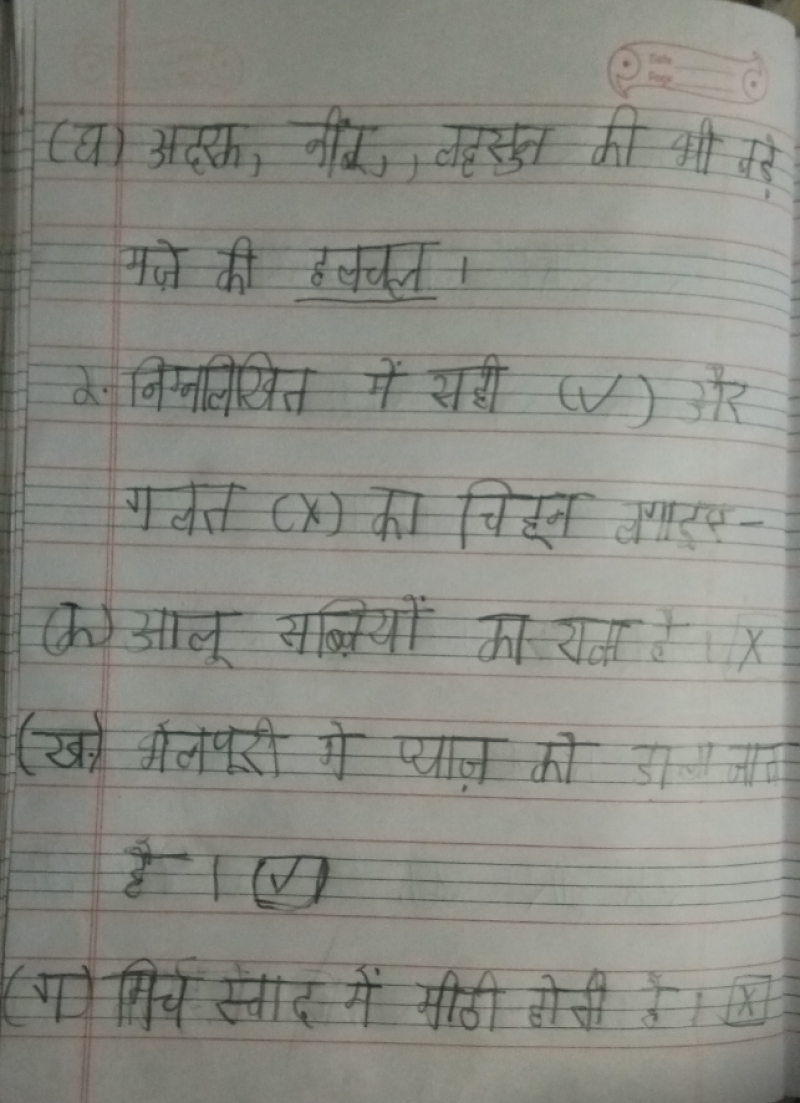 Date
Page
(घ) अदरक, नींबू,, लहसुन की भी बड़े
मज़े की हलचल ।
२. निम्नलिखित में सही (✓) और
गलत (X) का चिह्न लगाइए –
(क) आलू सब्ज़ियों का राजा है । X
(ख) भेलपूरी मे प्याज़ को डाला जाता
है । ✓
(ग) मिर्च स्वाद में मीठी होती है । X